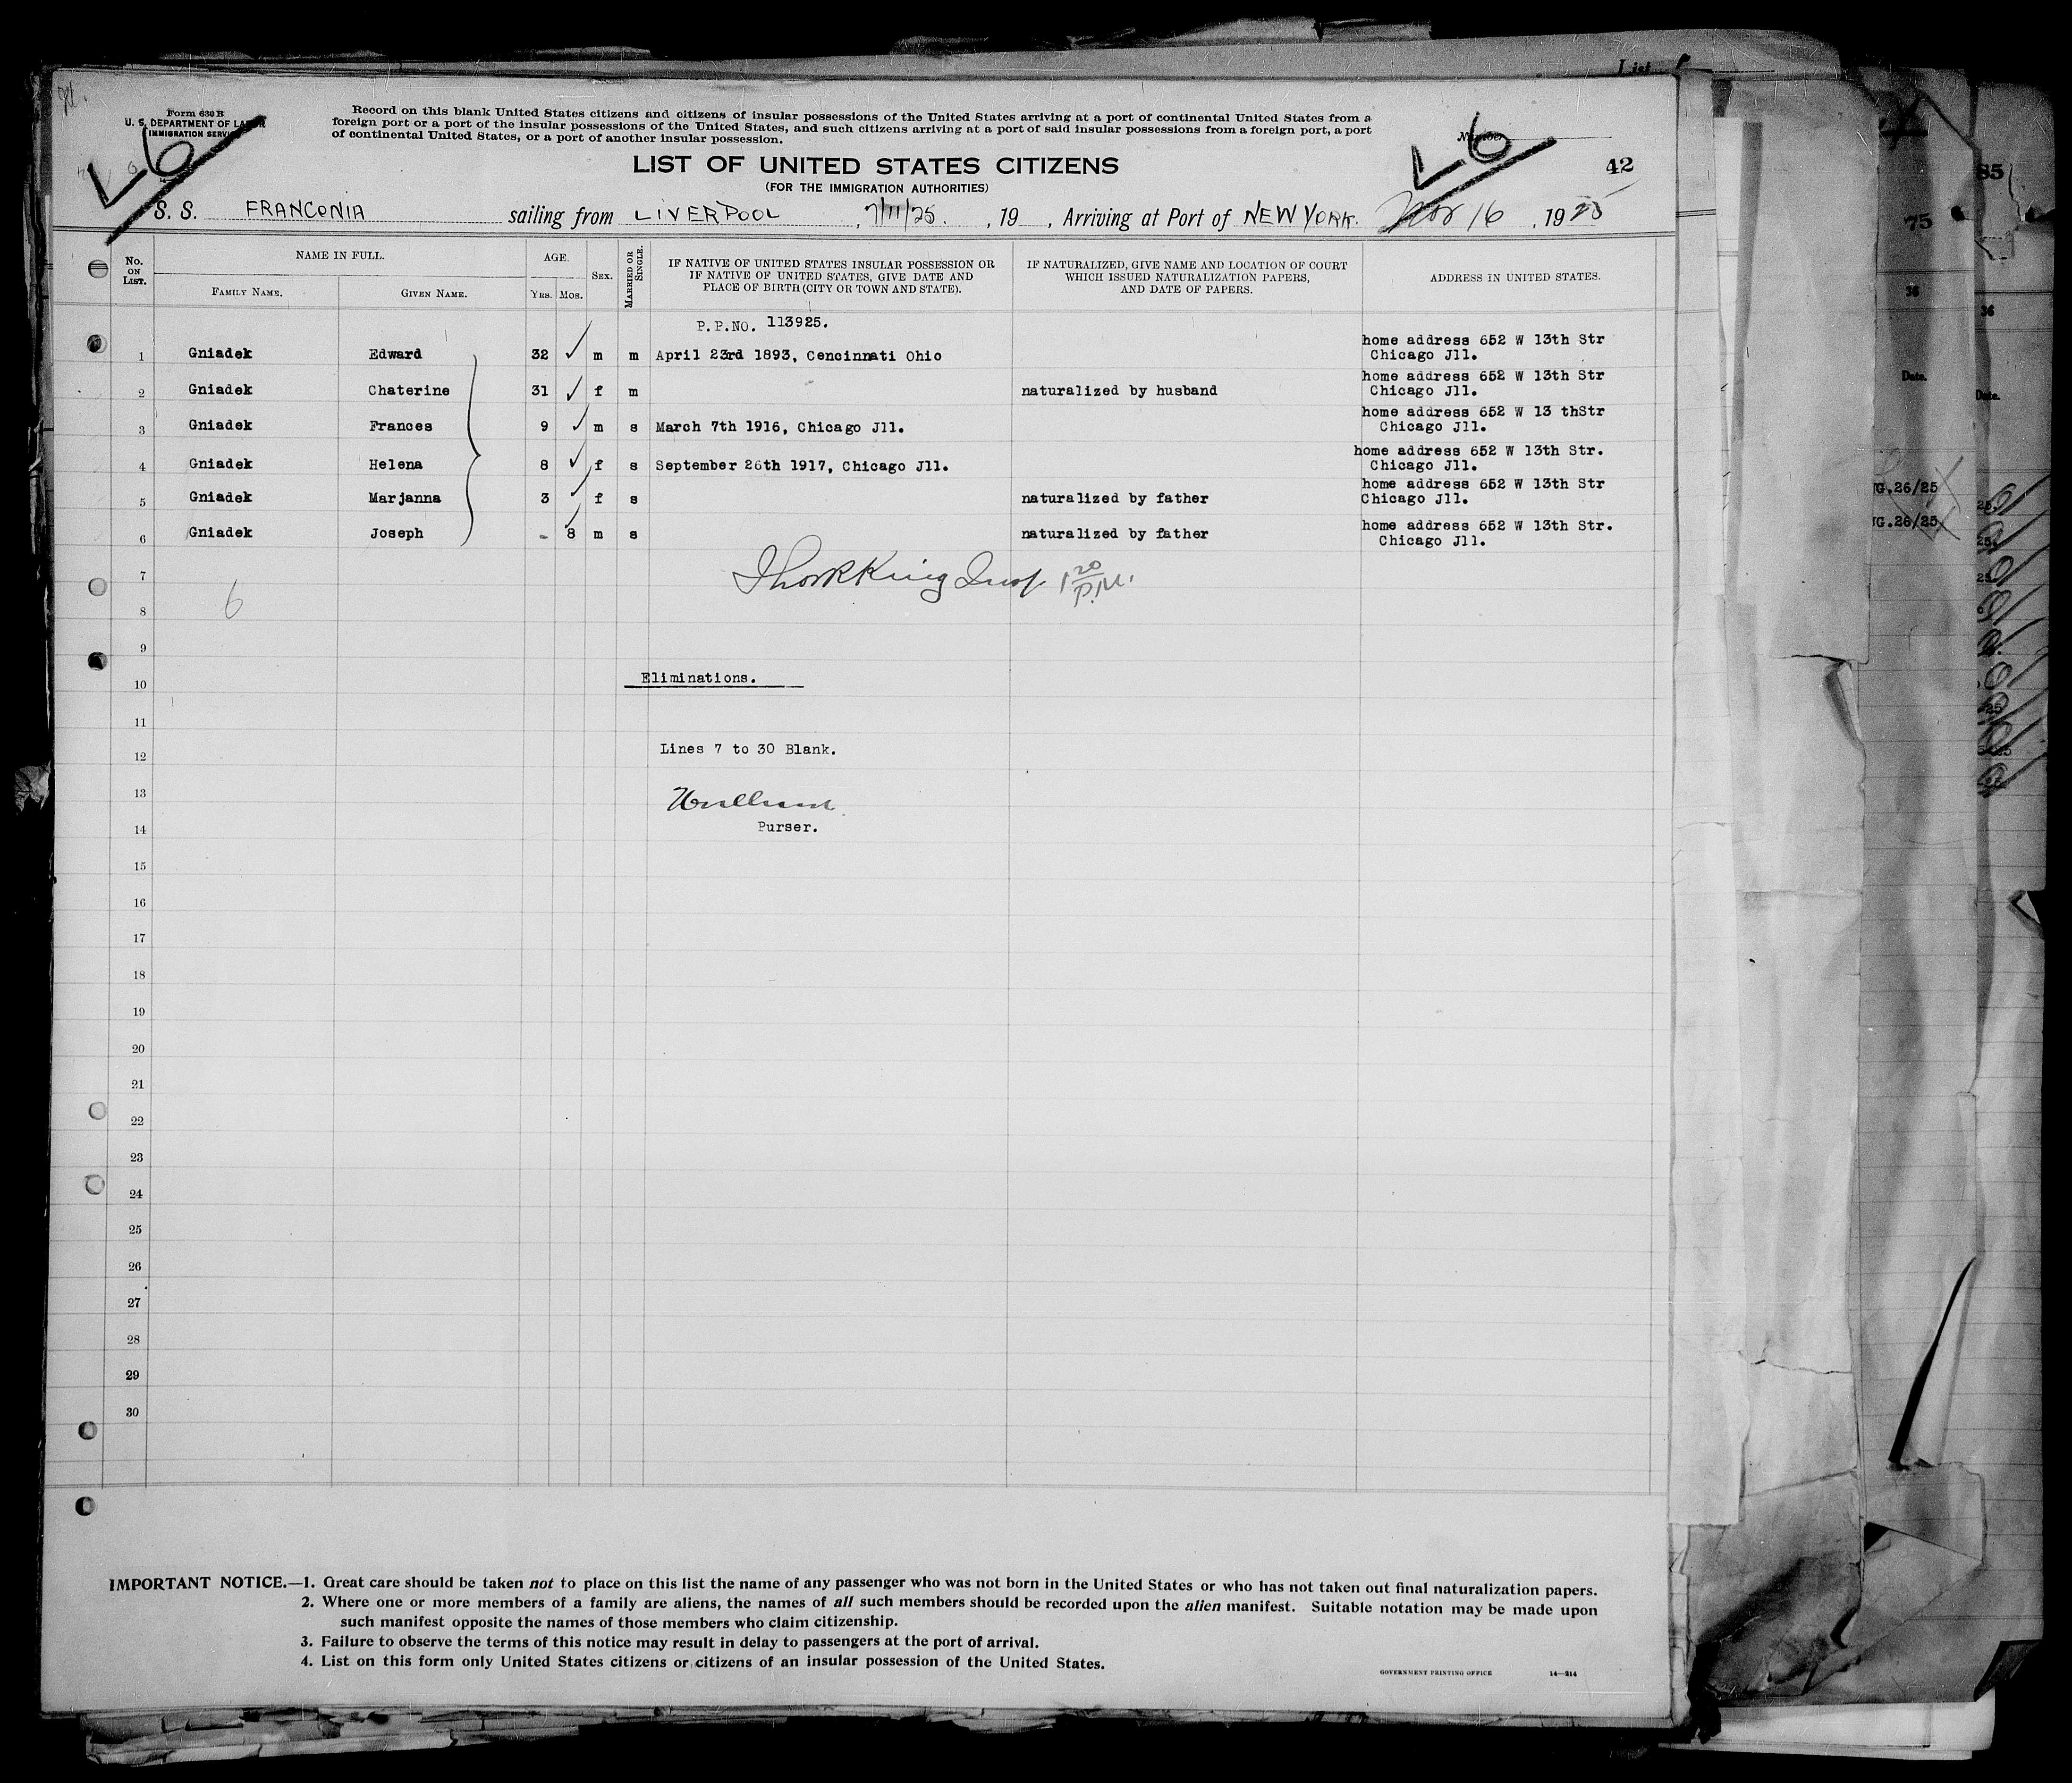 List
Form 630 B
U. S. DEPARTMENT OF LABOR
IMMIGRATION SERVICE
Record on this blank United States citizens and citizens of insular possessions of the United States arriving at a port of continental United States from a
foreign port or a port of the insular possessions of the United States, and such citizens arriving at a port of said insular possessions from a foreign port, a port
of continental United States, or a port of another insular possession.
L6
L6
42
LIST OF UNITED STATES CITIZENS
(FOR THE IMMIGRATION AUTHORITIES)
S. S. FRANCONIA sailing from LIVERPOOL, 7/11/25., 19 , Arriving at Port of NEW YORK. Nov 16, 1925
No. ON LIST.
NAME IN FULL.
FAMILY NAME. GIVEN NAME.
AGE.
YRS. MOS.
SEX.
MARRIED OR SINGLE.
IF NATIVE OF UNITED STATES INSULAR POSSESSION OR
IF NATIVE OF UNITED STATES, GIVE DATE AND
PLACE OF BIRTH (CITY OR TOWN AND STATE).
IF NATURALIZED, GIVE NAME AND LOCATION OF COURT
WHICH ISSUED NATURALIZATION PAPERS,
AND DATE OF PAPERS.
ADDRESS IN UNITED STATES.
P.P.NO. 113925.
1 Gniadek Edward 32 m m April 23rd 1893, Cencinnati Ohio home address 652 W 13th Str
Chicago Jll.
2 Gniadek Chaterine 31 f m naturalized by husband home address 652 W 13th Str
Chicago Jll.
3 Gniadek Frances 9 m s March 7th 1916, Chicago Jll. home address 652 W 13 thStr
Chicago Jll.
4 Gniadek Helena 8 f s September 26th 1917, Chicago Jll. home address 652 W 13th Str.
Chicago Jll.
5 Gniadek Marjanna 3 f s naturalized by father home address 652 W 13th Str
Chicago Jll.
6 Gniadek Joseph - 8 m s naturalized by father home address 652 W 13th Str.
Chicago Jll.
7 King Insp 1 20 P.M.
8 6
9
10 Eliminations.
11
12 Lines 7 to 30 Blank.
13
14 Purser.
15
16
17
18
19
20
21
22
23
24
25
26
27
28
29
30
IMPORTANT NOTICE.—1. Great care should be taken not to place on this list the name of any passenger who was not born in the United States or who has not taken out final naturalization papers.
2. Where one or more members of a family are aliens, the names of all such members should be recorded upon the alien manifest. Suitable notation may be made upon
such manifest opposite the names of those members who claim citizenship.
3. Failure to observe the terms of this notice may result in delay to passengers at the port of arrival.
4. List on this form only United States citizens or citizens of an insular possession of the United States.
GOVERNMENT PRINTING OFFICE 14—214
75
36
Date.
UG.26/25
UG.26/25
85
36
Date.